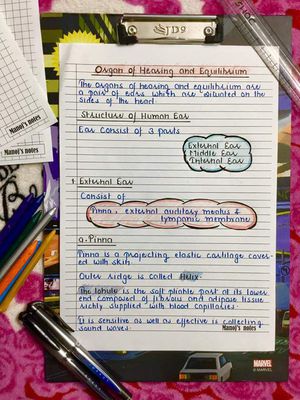 JD9
Organ of Hearing and Equilibrium
The organs of hearing and equilibrium are
a pair of ears which are situated on the
sides of the head
Structure of Human Ear
Ear consist of 3 parts
External Ear
Middle Ear
Internal Ear
1 External Ear
Consist of
Pinna, external auditory meatus &
tympanic membrane
a. Pinna
Pinna is a projecting elastic cartilage cover-
ed with skin
Outer ridge is called Helix.
The lobule is the soft pliable part of its lower
end composed of fibrous and adipose tissue
richly supplied with blood capillaries.
It is sensitive as well as effective is collecting
sound waves.
Manoj's notes
Manoj's notes
Manoj's notes
MARVEL
© MARVEL